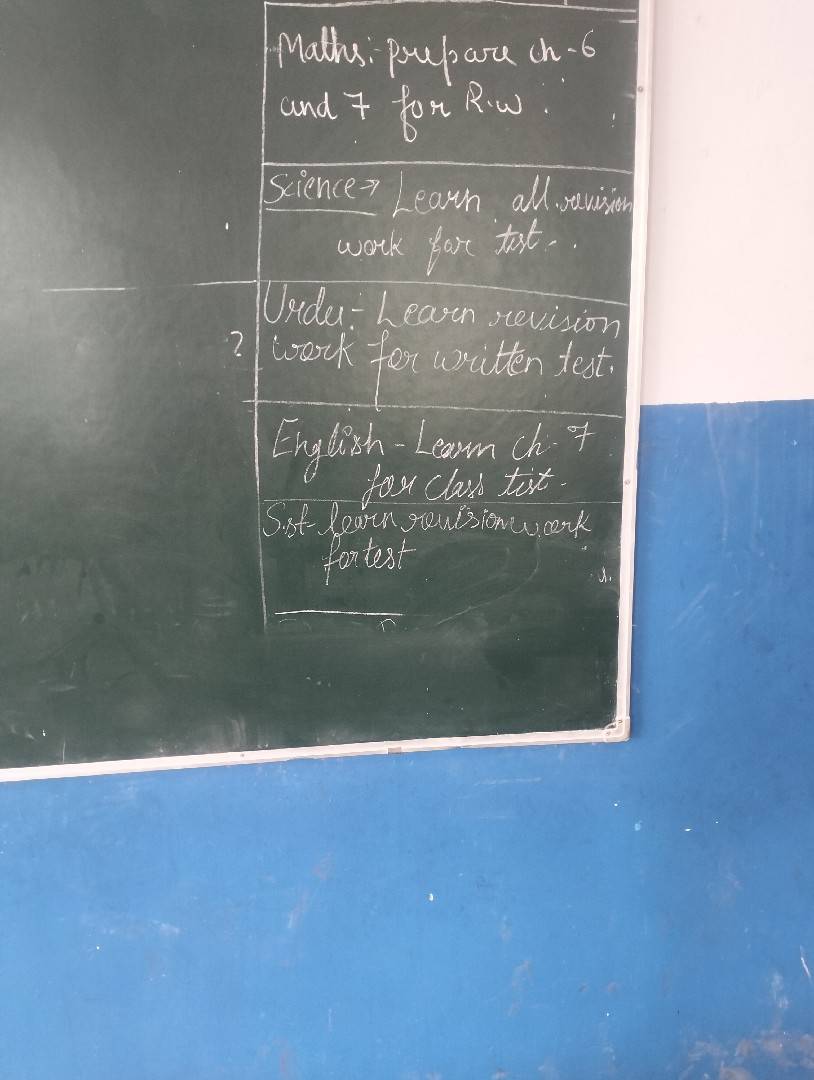 Maths:- prepare ch-6
and 7 for R.w.
Science → Learn all revision
work for test.
Urdu:- Learn revision
? work for written test.
English - Learn ch-7
for class test-
S.st- learn revision work
for test